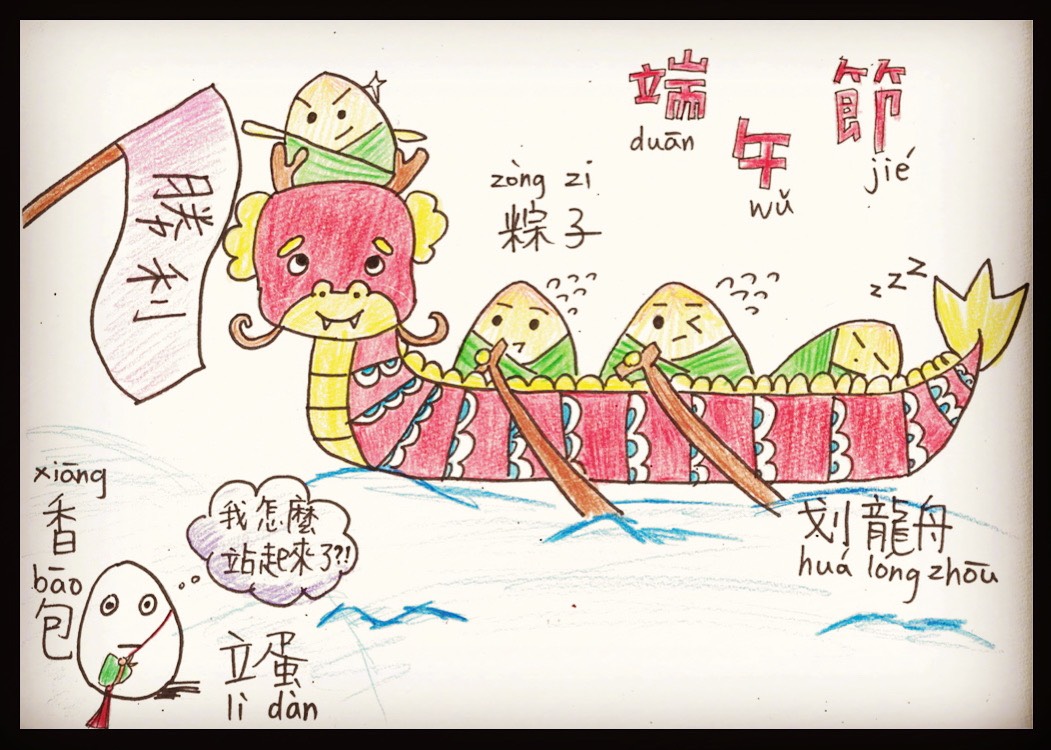 端
duān
午
wǔ
節
jié
勝利
zòng zi
粽子
zzz
划龍舟
huá lóng zhōu
xiāng
香
bāo
包
我怎麼
站起來了?!
立蛋
lì dàn